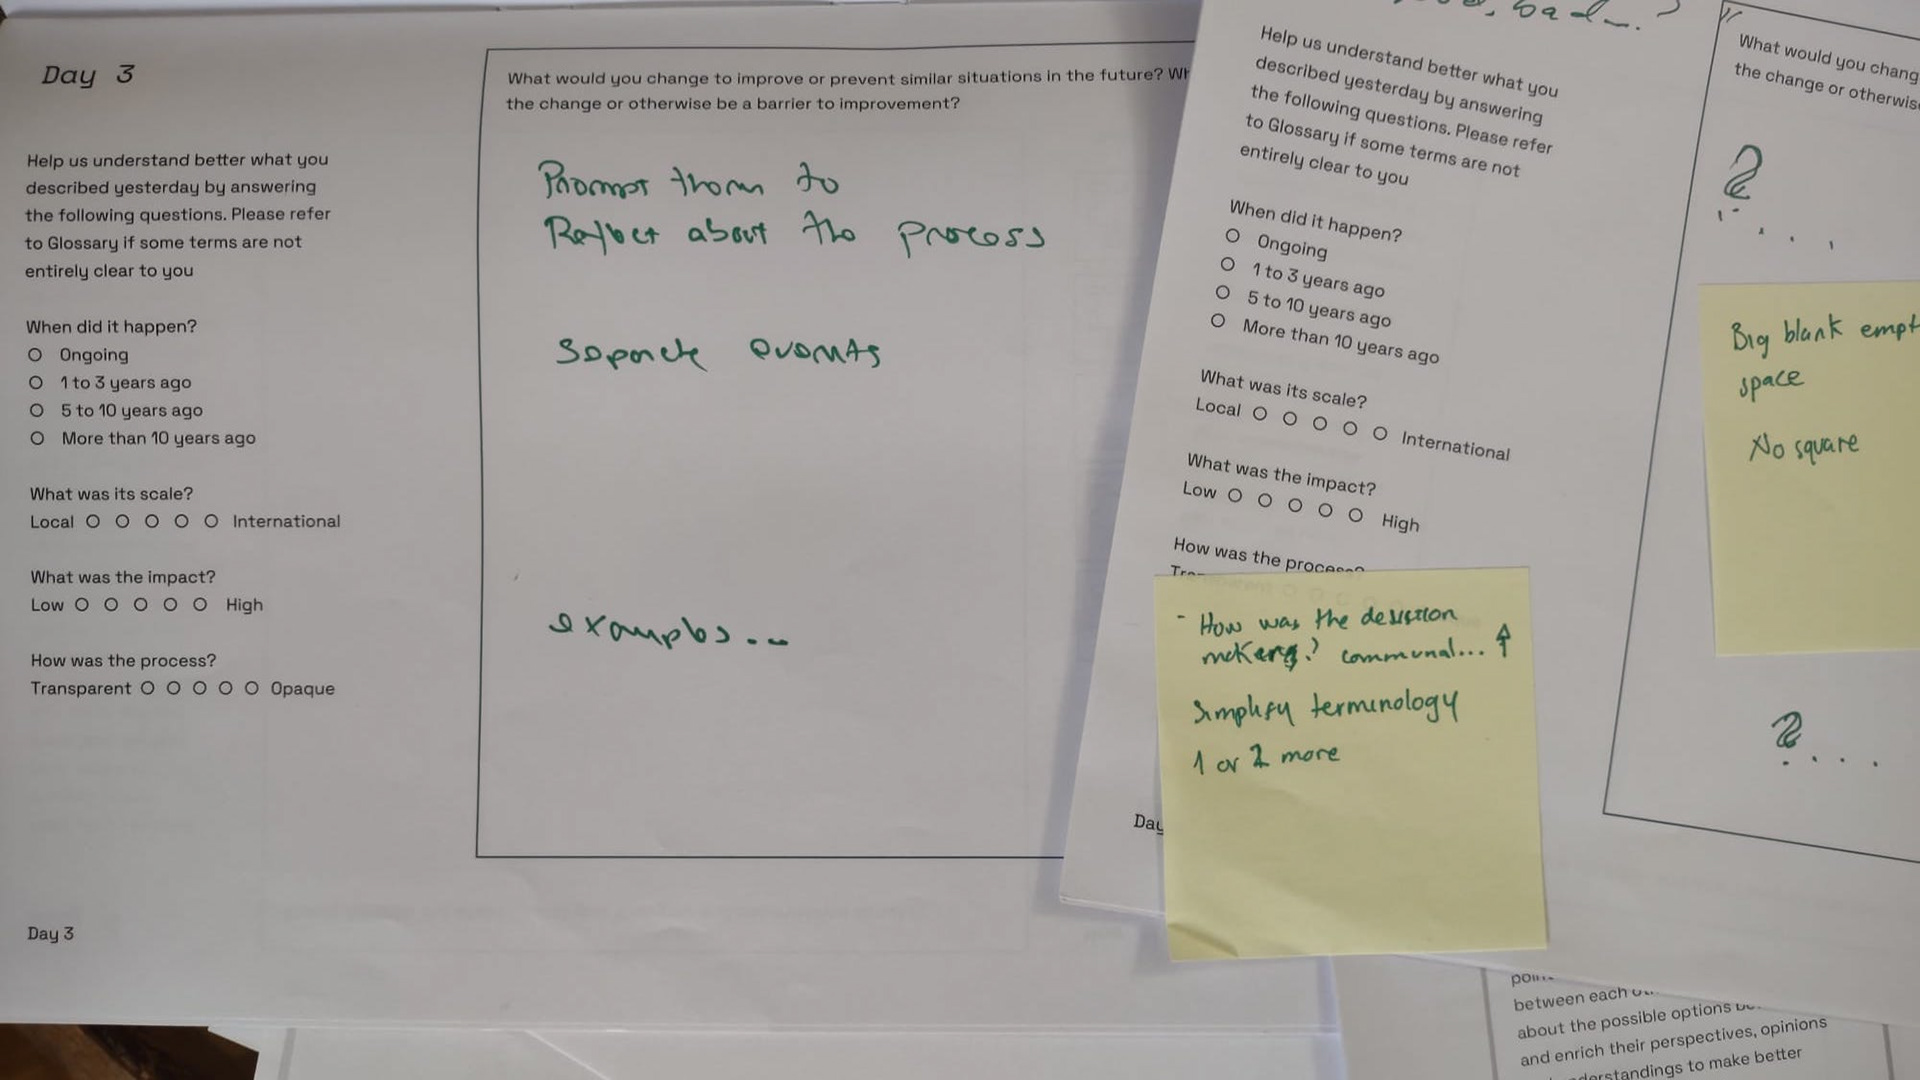 Day 3
Help us understand better what you
described yesterday by answering
the following questions. Please refer
to Glossary if some terms are not
entirely clear to you
When did it happen?
Ongoing
1 to 3 years ago
5 to 10 years ago
More than 10 years ago
What was its scale?
Local International
What was the impact?
Low High
How was the process?
Transparent Opaque
Day 3
What would you change to improve or prevent similar situations in the future?
the change or otherwise be a barrier to improvement?
Prompt them to
Reflect about the process
Separate events
examples...
bad...?
Help us understand better what you
described yesterday by answering
the following questions. Please refer
to Glossary if some terms are not
entirely clear to you
When did it happen?
Ongoing
1 to 3 years ago
5 to 10 years ago
More than 10 years ago
What was its scale?
Local International
What was the impact?
Low High
How was the process?
- How was the decision
making? communal... ↑
Simplify terminology
1 or 2 more
Day
What would you chang
the change or otherwis
?....
Big blank empt
space
No square
?....
between each
about the possible options
and enrich their perspectives, opinions
to make better